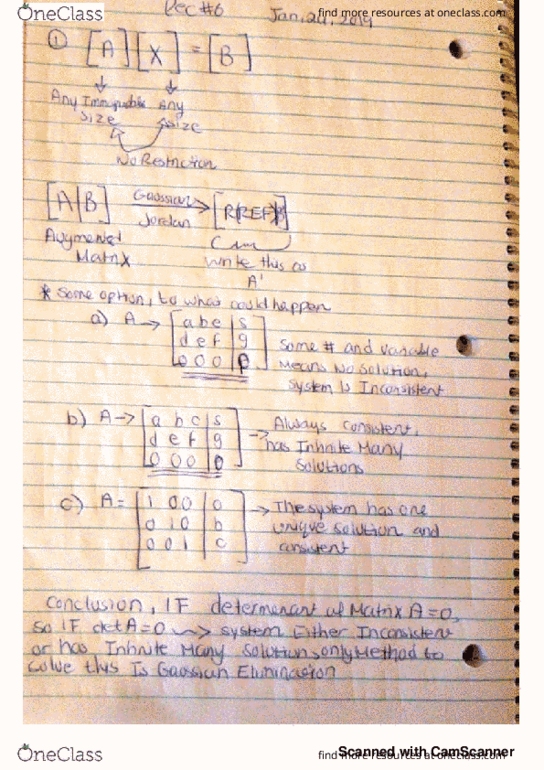 OneClass
find more resources at oneclass.com
Lec #6 Jan, 24, 2019
① [A][X] = [B]
Any Size Any size
No Restriction
[A|B] Gaussian Jordan → [RREF|B]
Augmented Matrix
Write this as
A'
* Some option, to what could happen
a) A → [a b c | s
d e f | g
0 0 0 | P]
Some # and variable
Means No Solution,
System Is Inconsistent
b) A → [a b c | s
d e f | g
0 0 0 | 0]
→ Always Consistent,
has Infinite Many
Solutions
c) A = [1 0 0 | a
0 1 0 | b
0 0 1 | c]
→ The system has one
unique solution and
consistent
Conclusion, IF determenant of Matrix A = 0,
so IF det A = 0 → system Either Inconsistent
or has Infinite Many Solutions, only Method to
solve this Is Gaussian Elimination
OneClass
find more resources at oneclass.com
Scanned with CamScanner